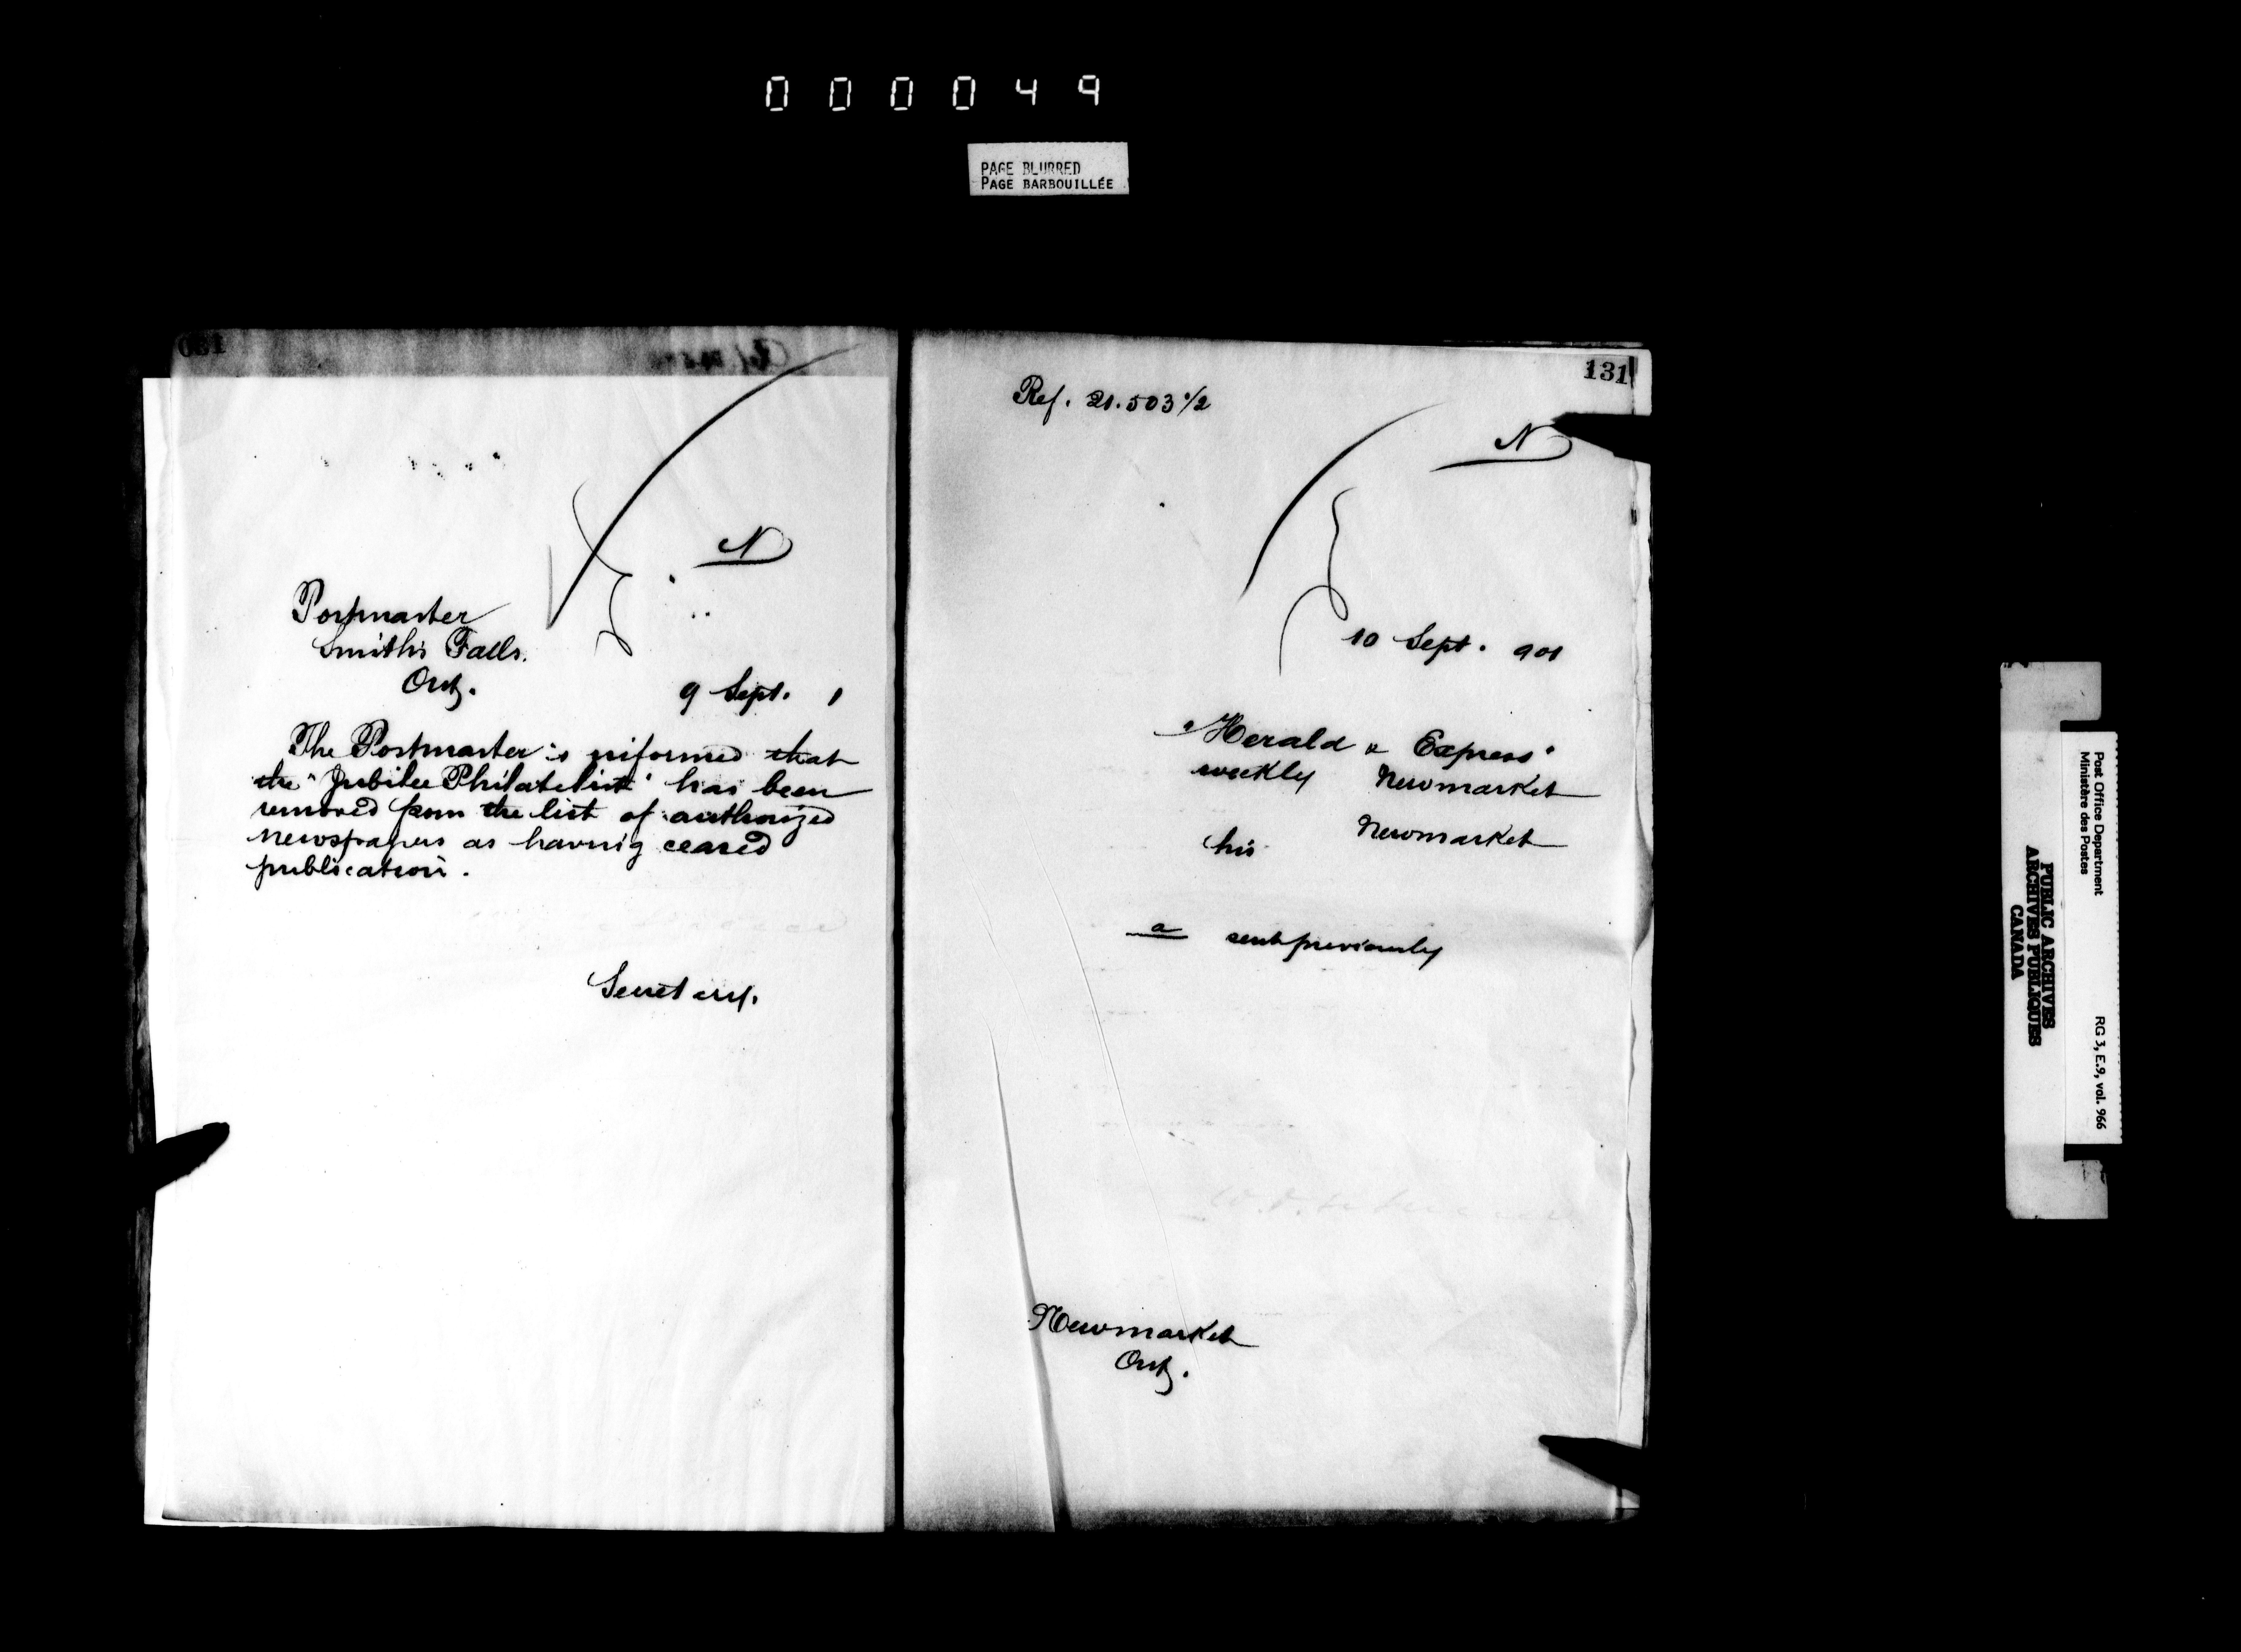 000049
PAGE BLURRED
PAGE BARBOUILLÉE
N
Postmaster
Smith's Falls.
Ont.
9 Sept. 1
The Postmaster is informed that
the "Jubilee Philatelist" has been
removed from the list of authorized
newspapers as having ceased
publication.
Secretary.
131
Ref. 21.503 1/2
N
10 Sept. 901
"Herald & Express"
weekly Newmarket
his Newmarket
a sent previously
Newmarket
Ont.
Post Office Department
Ministère des Postes
RG 3, E.9, vol. 966
PUBLIC ARCHIVES
ARCHIVES PUBLIQUES
CANADA